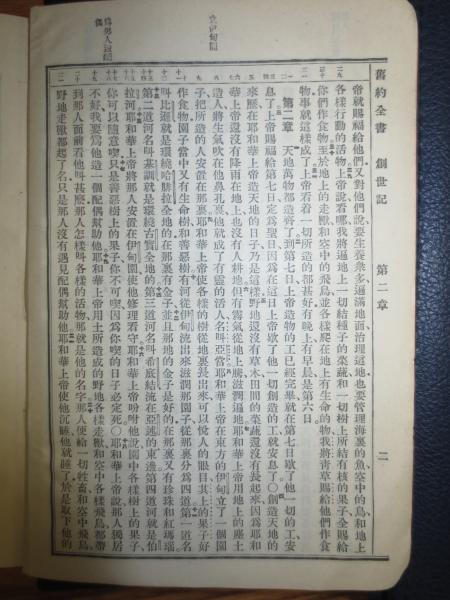 舊約全書　創世記　第二章　二
帝就賜福給他們又對他們說要生養衆多遍滿地面治理這地也要管理海裏的魚空中的鳥和地上
各樣行動的活物上帝說看哪我將遍地上一切結種子的菜蔬和一切樹上所結有核的果子全賜給
你們作食物至於地上的走獸和空中的飛鳥並各樣爬在地上有生命的物我將靑草賜給他們作食
物事就這樣成了上帝看着一切所造的都甚好有晚上有早晨是第六日
第二章　天地萬物都造齊了到第七日上帝造物的工已經完畢就在第七日歇了他一切的工安
息了上帝賜福給第七日定爲聖日因爲在這日上帝歇了他一切創造的工就安息了〇創造天地的
來歷在耶和華上帝造天地的日子乃是這樣野地還沒有草木田間的菜蔬還沒有長起來因爲耶和
華上帝還沒有降雨在地上也沒有人耕地但有霧氣從地上騰滋潤遍地耶和華上帝用地上的塵土
造人將生氣吹在他鼻孔裏他就成了有靈的活人名叫亞當耶和華上帝在東方的伊甸立了一個園
子把所造的人安置在那裏耶和華上帝使各樣的樹從地裏長出來可以悅人的眼目其上的果子好
作食物園子當中又有生命樹和善惡樹有河從伊甸流出來滋潤那園子從那裏分爲四道第一道名
叫比遜就是環繞哈腓拉全地的在那裏有金子並且那地的金子是好的在那裏又有珍珠和紅瑪瑙
第二道河名叫基訓就是環繞古實全地的第三道河名叫希底結流在亞述的東邊第四道河就是伯
拉河耶和華上帝將那人安置在伊甸園使他修理看守耶和華上帝吩咐他說園中各樣樹上的果子
你可以隨意喫只是善惡樹上的果子你不可喫因爲你喫的日子必定死〇耶和華上帝說那人獨居
不好我要爲他造一個配偶幫助他耶和華上帝用土所造成的野地各樣走獸和空中各樣飛鳥都帶
到那人面前看他叫甚麼那人怎樣叫各樣的活物那就是他的名字那人便給一切牲畜和空中飛鳥
野地走獸都起了名只是那人沒有遇見配偶幫助他耶和華上帝使他沉睡他就睡了於是取下他的
立伊甸園
爲男人造配
偶